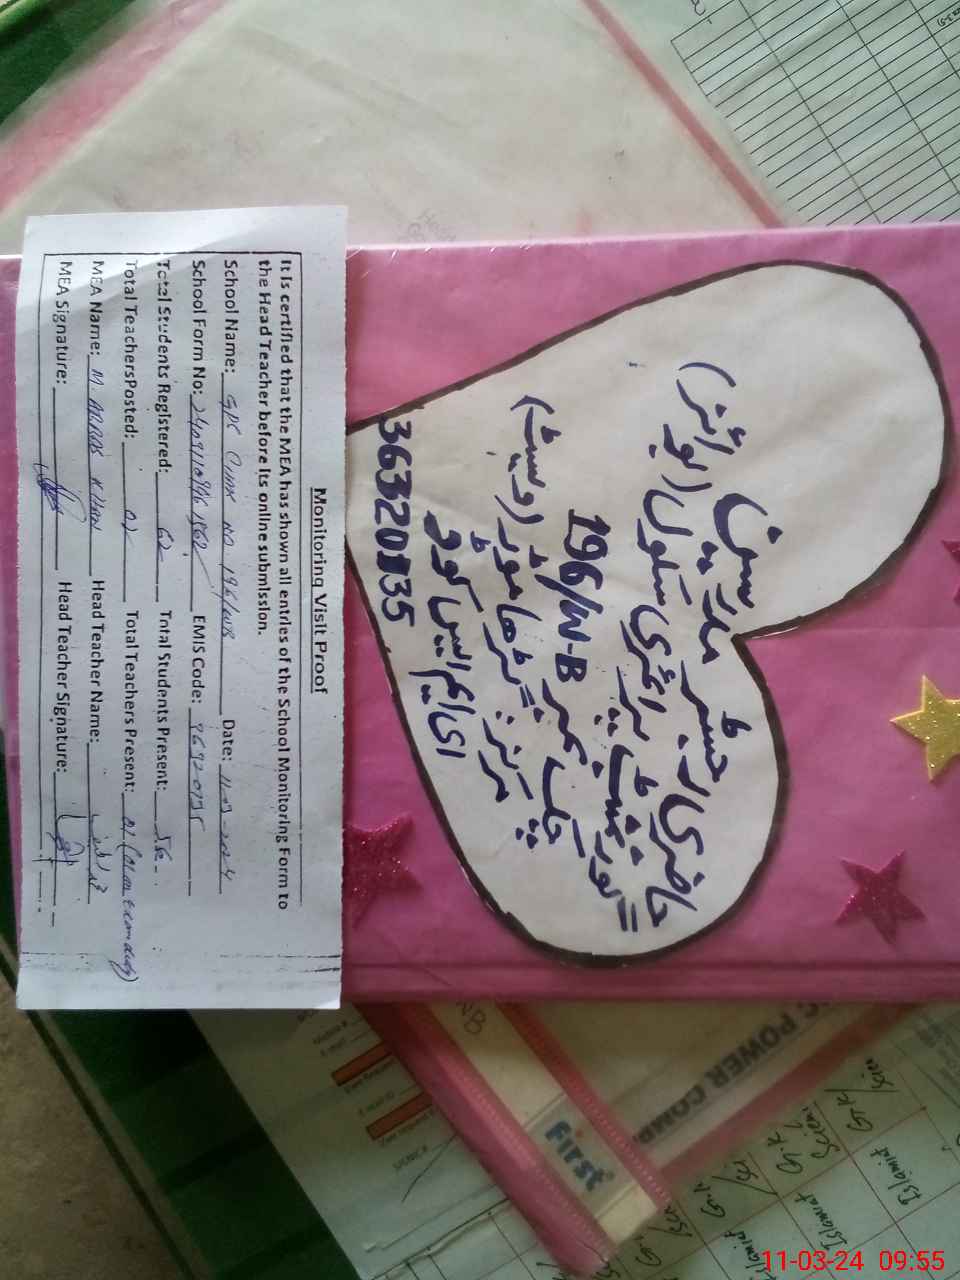 حاضری رجسٹر مدرسین
گورنمنٹ پرائمری سکول (بوائز)
چک نمبر 196/W-B
مرکز: گڑھا موڑ (ویسٹ)
ای ایم آئیس کوڈ
36320135
Monitoring Visit Proof
It is certified that the MEA has shown all entries of the School Monitoring Form to
the Head Teacher before its online submission.
School Name: GPS Chak No 196/WB Date: 11-03-2024
School Form No: EMIS Code: 36320135
Total Students Registered: 62 Total Students Present: 56
Total TeachersPosted: 02 Total Teachers Present: 01 (01 on exam duty)
MEA Name: M. ABBAS KHAN Head Teacher Name:
MEA Signature: Head Teacher Signature:
First
C POWER COM
NB
Science
G.K
Islamiat
Scienc
G.K
Islamiat
11-03-24 09:55